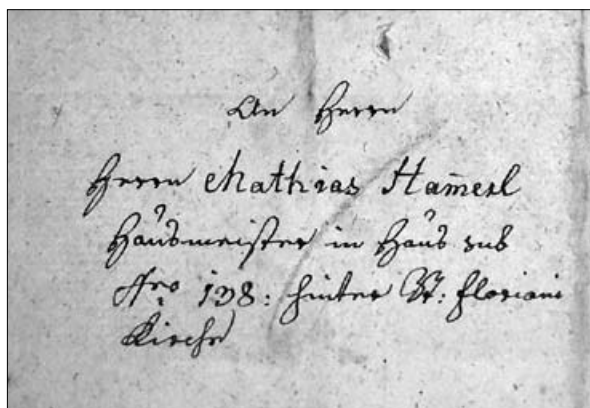 An Herrn
Herrn Mathias Ham̅erl
Hausmeister in Haus sub
Nro 138: hinter St: Floriani
Kirche